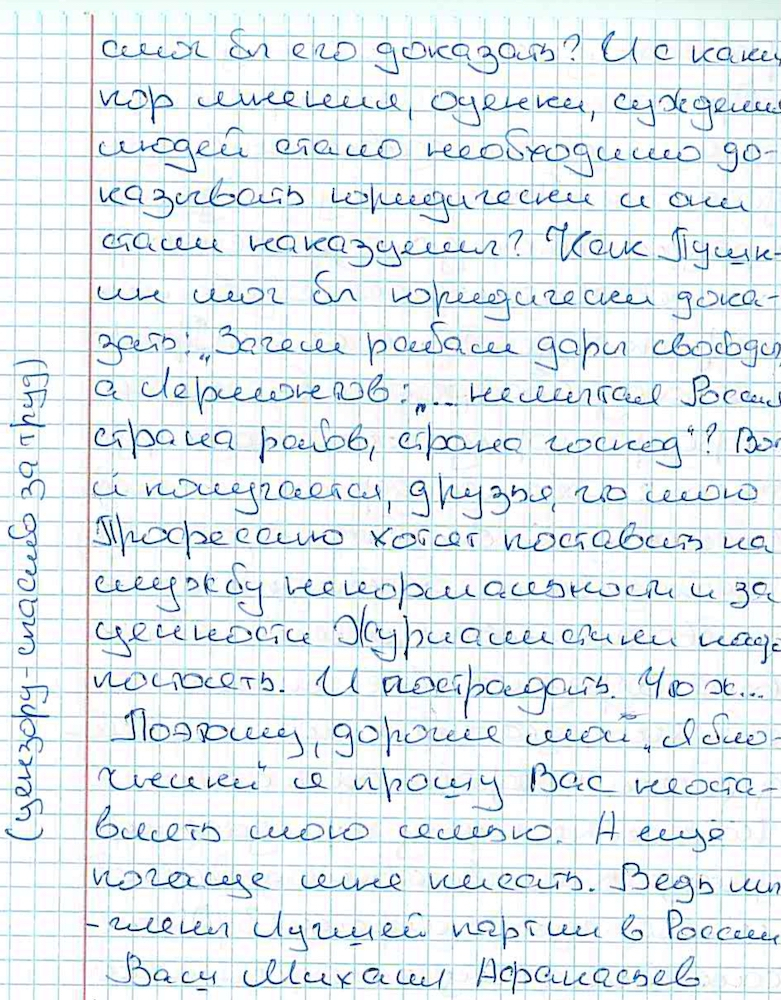 смог бы его доказать? И с каки
пор мнения, оценки, суждени
людей стало необходимо до-
казывать юридически и они
стали наказуемы? Как Пушк-
ин мог бы юридически дока-
зать: „Зачем рабам дары свободы
а Лермонтов: „... немытая Россия
страна рабов, страна господ"? Вот
и получается, друзья, что мою
Профессию хотят поставить на
службу ненормальности и за
ценности Журналистики надо
постоять. И пострадать. Что ж...
Поэтому, дорогие мои „Ябло-
чники" я прошу Вас неоста-
влять мою семью. А ещё
почаще мне писать. Ведь мы
- члены Лучшей партии в России
Ваш Михаил Афанасьев
(цензору - спасибо за труд)